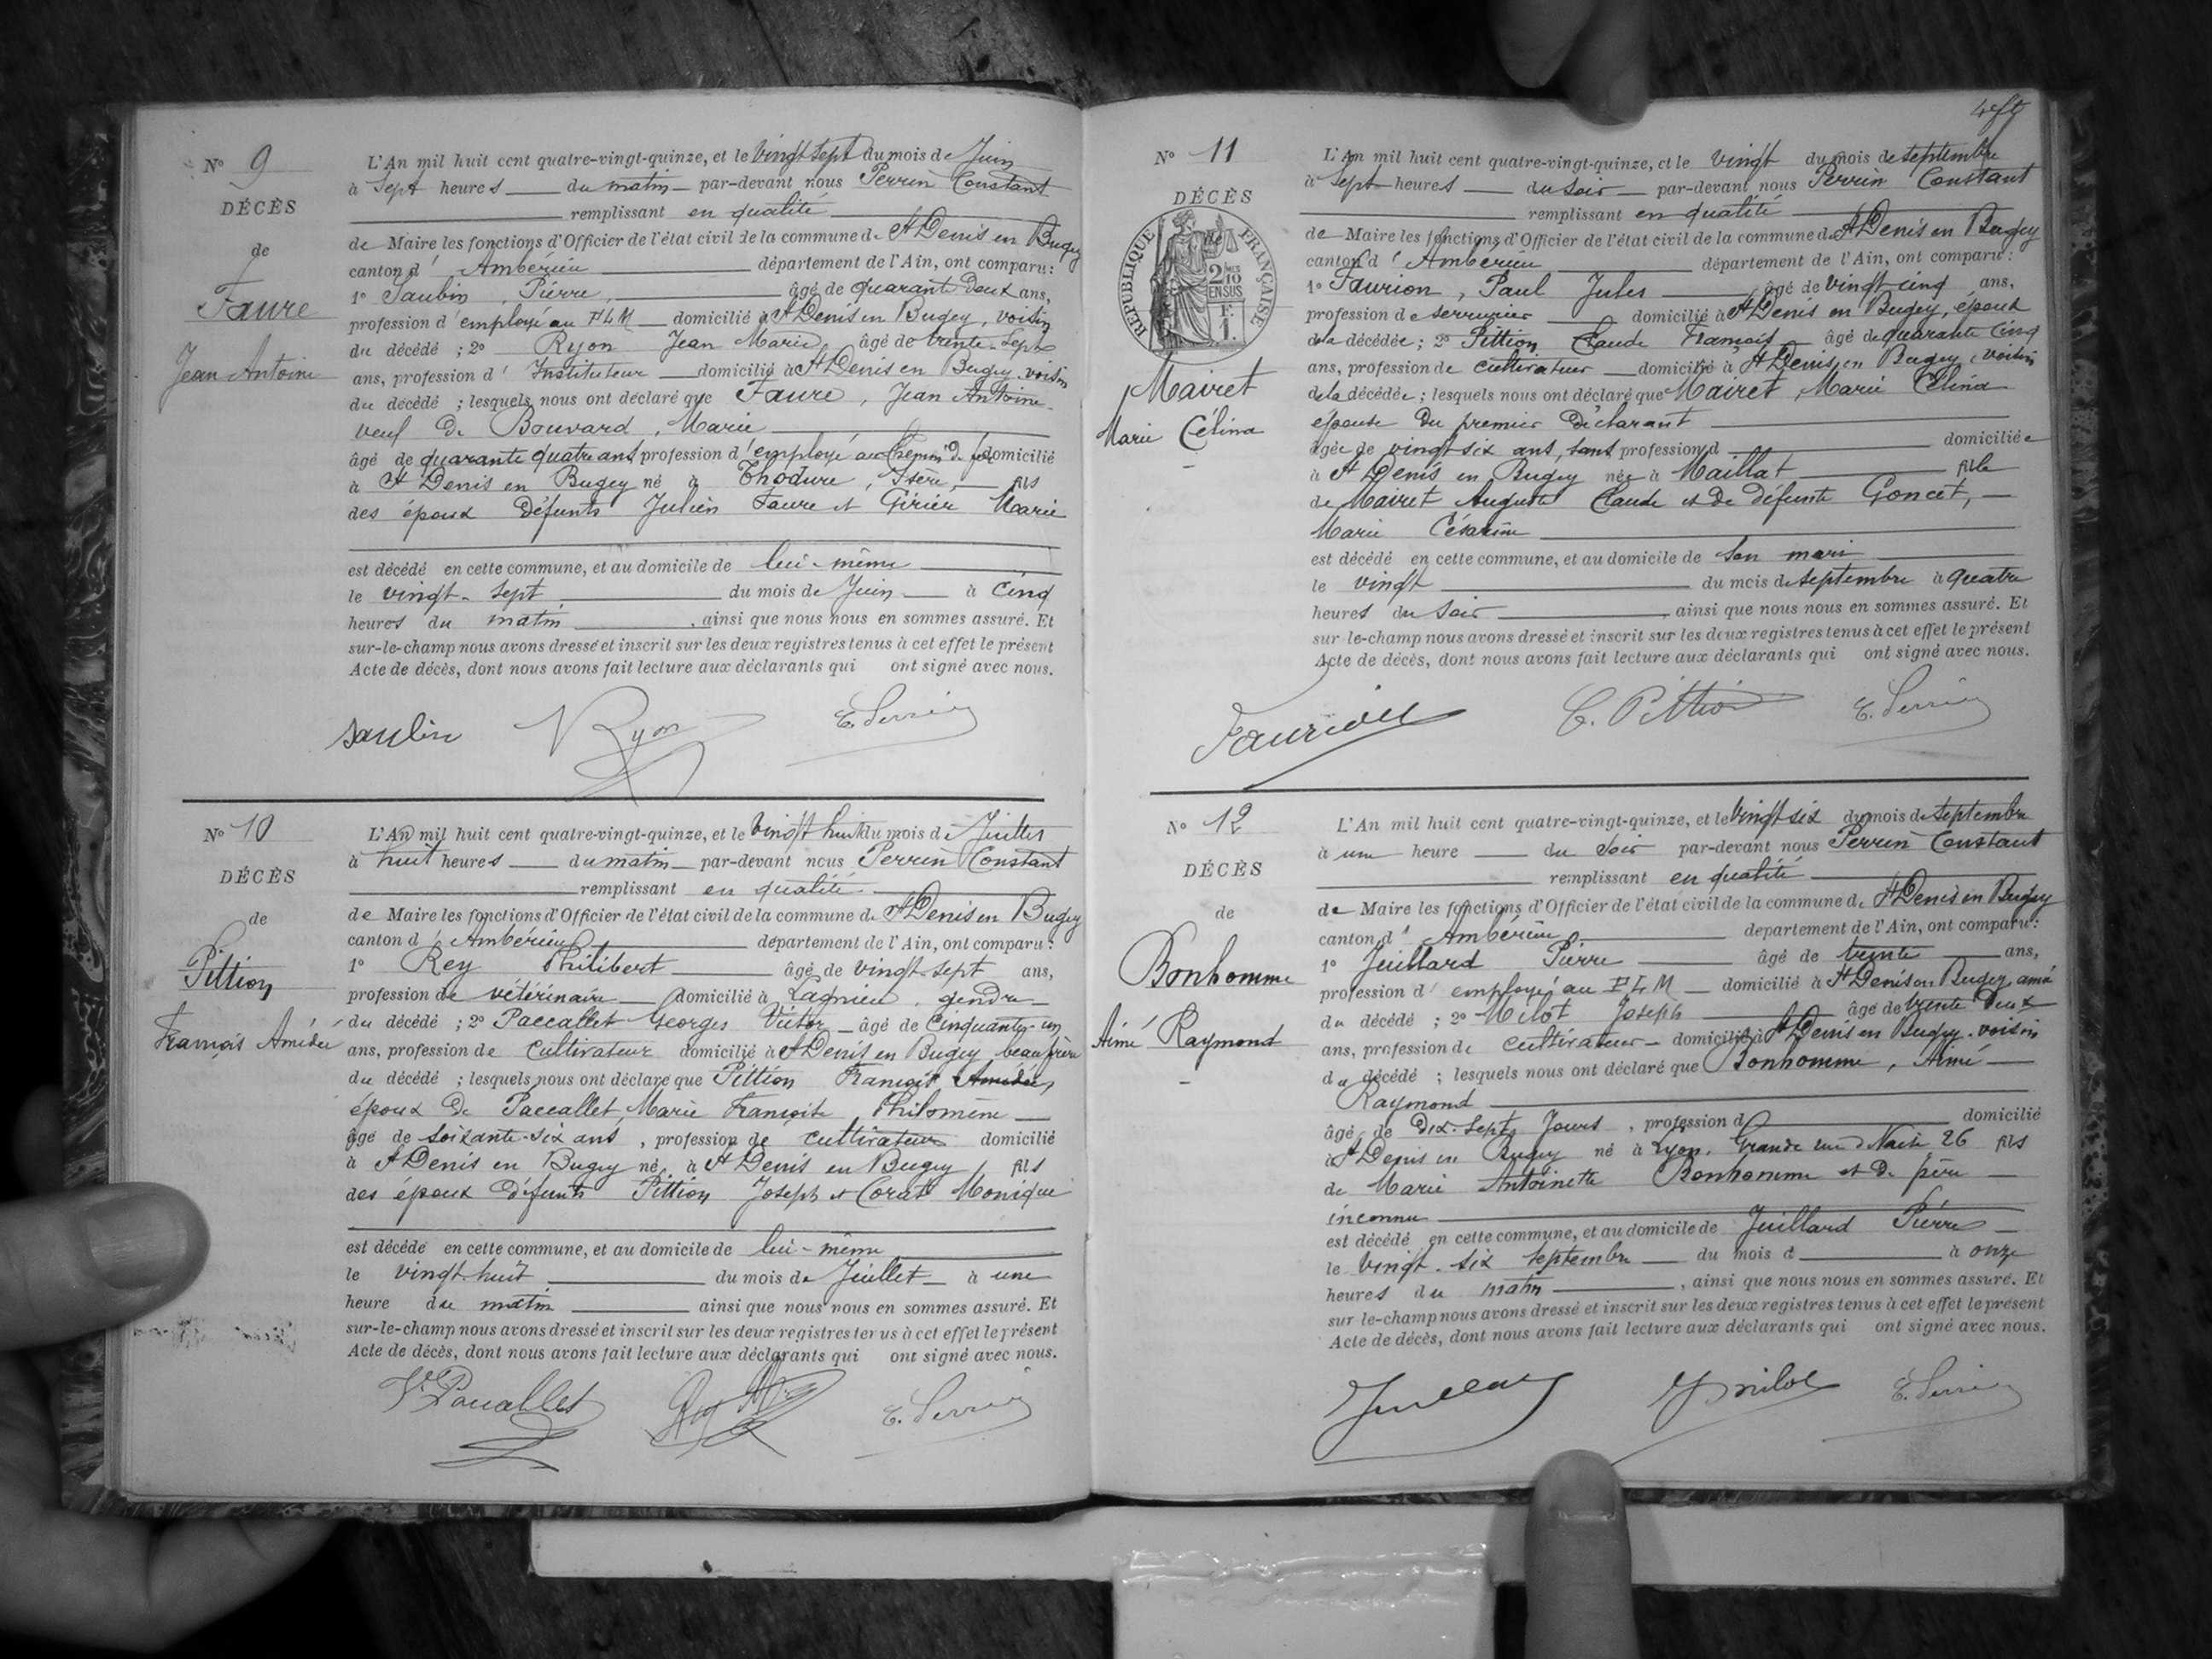 N° 9
DÉCÈS
de
Faure
Jean Antoine
L'An mil huit cent quatre-vingt-quinze, et le vingt sept du mois de Juin
à sept heures du matin par-devant nous Perrin Constant
remplissant en qualité
de Maire les fonctions d'Officier de l'état civil de la commune de St Denis en Bugey
canton d'Ambérieu département de l'Ain, ont comparu:
1° Saubin, Pierre, âgé de quarant deux ans,
profession d'employé au PLM domicilié à St Denis en Bugey, voisin
du décédé ; 2° Ryon Jean Marie, âgé de trente-sept
ans, profession d'Instituteur domicilié à St Denis en Bugey voisin
du décédé ; lesquels nous ont déclaré que Faure, Jean Antoine
veuf de Bouvard, Marie
âgé de quarante quatre ans profession d'employé au Chemin de fer domicilié
à St Denis en Bugey né à Thodure, Isère, fils
des époux défunts Julien Faure et Girier Marie
est décédé en cette commune, et au domicile de lui-même
le vingt-sept du mois de Juin à cinq
heures du matin, ainsi que nous nous en sommes assuré. Et
sur-le-champ nous avons dressé et inscrit sur les deux registres tenus à cet effet le présent
Acte de décès, dont nous avons fait lecture aux déclarants qui ont signé avec nous.
Saubin Ryon C. Perrin
N° 10
DÉCÈS
de
Pittion
François Amédée
L'An mil huit cent quatre-vingt-quinze, et le vingt huit du mois de Juillet
à huit heures du matin par-devant nous Perrin Constant
remplissant en qualité
de Maire les fonctions d'Officier de l'état civil de la commune de St Denis en Bugey
canton d'Ambérieu département de l'Ain, ont comparu:
1° Rey Philibert âgé de vingt-sept ans,
profession de vétérinaire domicilié à Lagnieu, gendre
du décédé ; 2° Paccallet Georges Victor âgé de cinquante-un
ans, profession de cultivateur domicilié à St Denis en Bugey beau frère
du décédé ; lesquels nous ont déclaré que Pittion François Amédée,
époux de Paccallet, Marie Françoise, Philomène
âgé de soixante-six ans, profession de cultivateur domicilié
à St Denis en Bugey né à St Denis en Bugey, fils
des époux défunts Pittion Joseph et Corat Monique
est décédé en cette commune, et au domicile de lui-même
le vingt-huit du mois de Juillet à une
heure du matin ainsi que nous nous en sommes assuré. Et
sur-le-champ nous avons dressé et inscrit sur les deux registres tenus à cet effet le présent
Acte de décès, dont nous avons fait lecture aux déclarants qui ont signé avec nous.
V. Paccallet C. Perrin
N° 11
DÉCÈS
RÉPUBLIQUE FRANÇAISE
2 10 EN SUS
F. 1.
Mairet
Marie Célina
L'An mil huit cent quatre-vingt-quinze, et le vingt du mois de septembre
à sept heures du soir par-devant nous Perrin Constant
remplissant en qualité
de Maire les fonctions d'Officier de l'état civil de la commune de St Denis en Bugey
canton d'Ambérieu département de l'Ain, ont comparu:
1° Faurion, Paul Jules âgé de vingt cinq ans,
profession de serrurier domicilié à St Denis en Bugey, époux
de la décédée ; 2° Pittion Claude François âgé de quarante cinq
ans, profession de cultivateur domicilié à St Denis en Bugey, voisin
de la décédée ; lesquels nous ont déclaré que Mairet, Marie Célina
épouse du premier déclarant
âgée de vingt six ans, sans profession d domiciliée
à St Denis en Bugey née à Maillat fille
de Mairet Auguste Claude et de défunte Goncet,
Marie Césarine
est décédé en cette commune, et au domicile de son mari
le vingt du mois de septembre à quatre
heures du soir, ainsi que nous nous en sommes assuré. Et
sur-le-champ nous avons dressé et inscrit sur les deux registres tenus à cet effet le présent
Acte de décès, dont nous avons fait lecture aux déclarants qui ont signé avec nous.
Faurion C. Pittion C. Perrin
N° 12
DÉCÈS
de
Bonhomme
Aimé Raymond
L'An mil huit cent quatre-vingt-quinze, et le vingt six du mois de septembre
à une heure du soir par-devant nous Perrin Constant
remplissant en qualité
de Maire les fonctions d'Officier de l'état civil de la commune de St Denis en Bugey
canton d'Ambérieu département de l'Ain, ont comparu:
1° Juillard Pierre âgé de trente ans,
profession d'employé au PLM domicilié à St Denis en Bugey, ami
du décédé ; 2° Milot Joseph âgé de trente deux
ans, profession de cultivateur domicilié à St Denis en Bugey, voisin
du décédé ; lesquels nous ont déclaré que Bonhomme, Aimé
Raymond
âgé de dix-sept Jours, profession d domicilié
à St Denis en Bugey né à Lyon, Grande rue 26 fils
de Marie Antoinette Bonhomme et de père
inconnu
est décédé en cette commune, et au domicile de Juillard Pierre
le vingt-six septembre du mois d à onze
heures du matin, ainsi que nous nous en sommes assuré. Et
sur le-champ nous avons dressé et inscrit sur les deux registres tenus à cet effet le présent
Acte de décès, dont nous avons fait lecture aux déclarants qui ont signé avec nous.
Juillard Milot C. Perrin